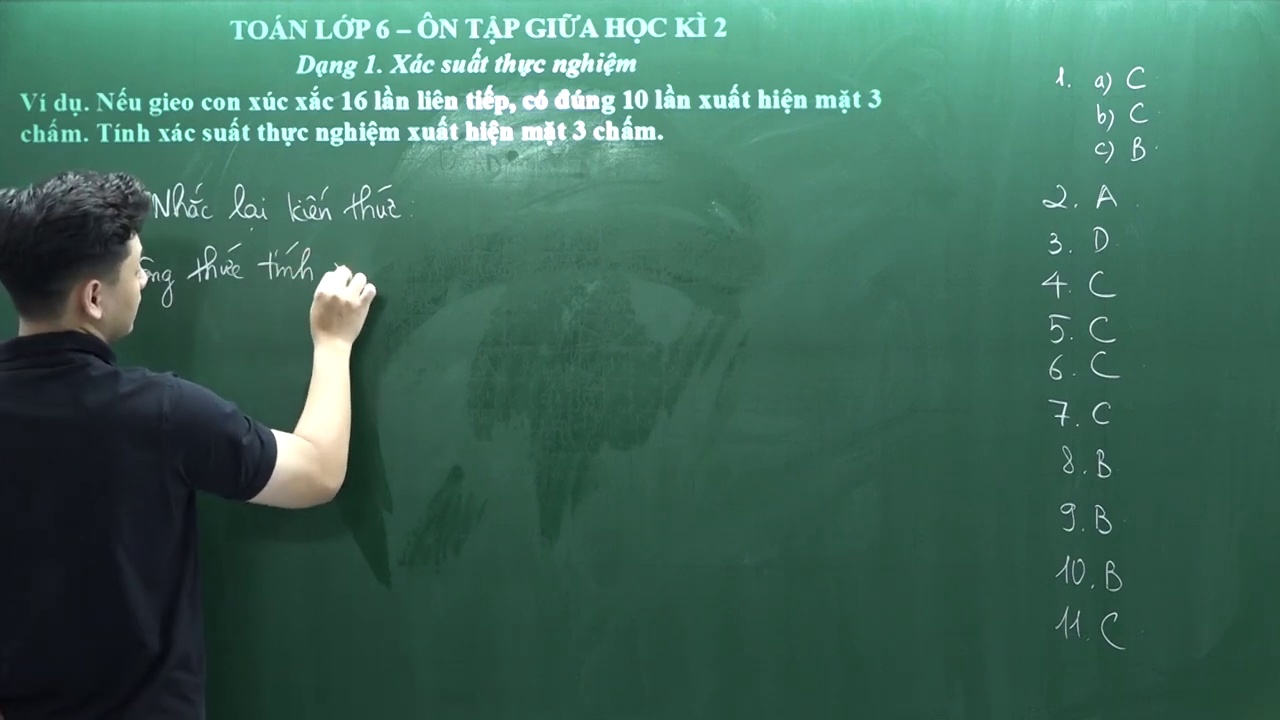 TOÁN LỚP 6 – ÔN TẬP GIỮA HỌC KÌ 2
Dạng 1. Xác suất thực nghiệm
Ví dụ. Nếu gieo con xúc xắc 16 lần liên tiếp, có đúng 10 lần xuất hiện mặt 3
chấm. Tính xác suất thực nghiệm xuất hiện mặt 3 chấm.
Nhắc lại kiến thức:
thức tính
1. a) C
b) C
c) B
2. A
3. D
4. C
5. C
6. C
7. C
8. B
9. B
10. B
11. C